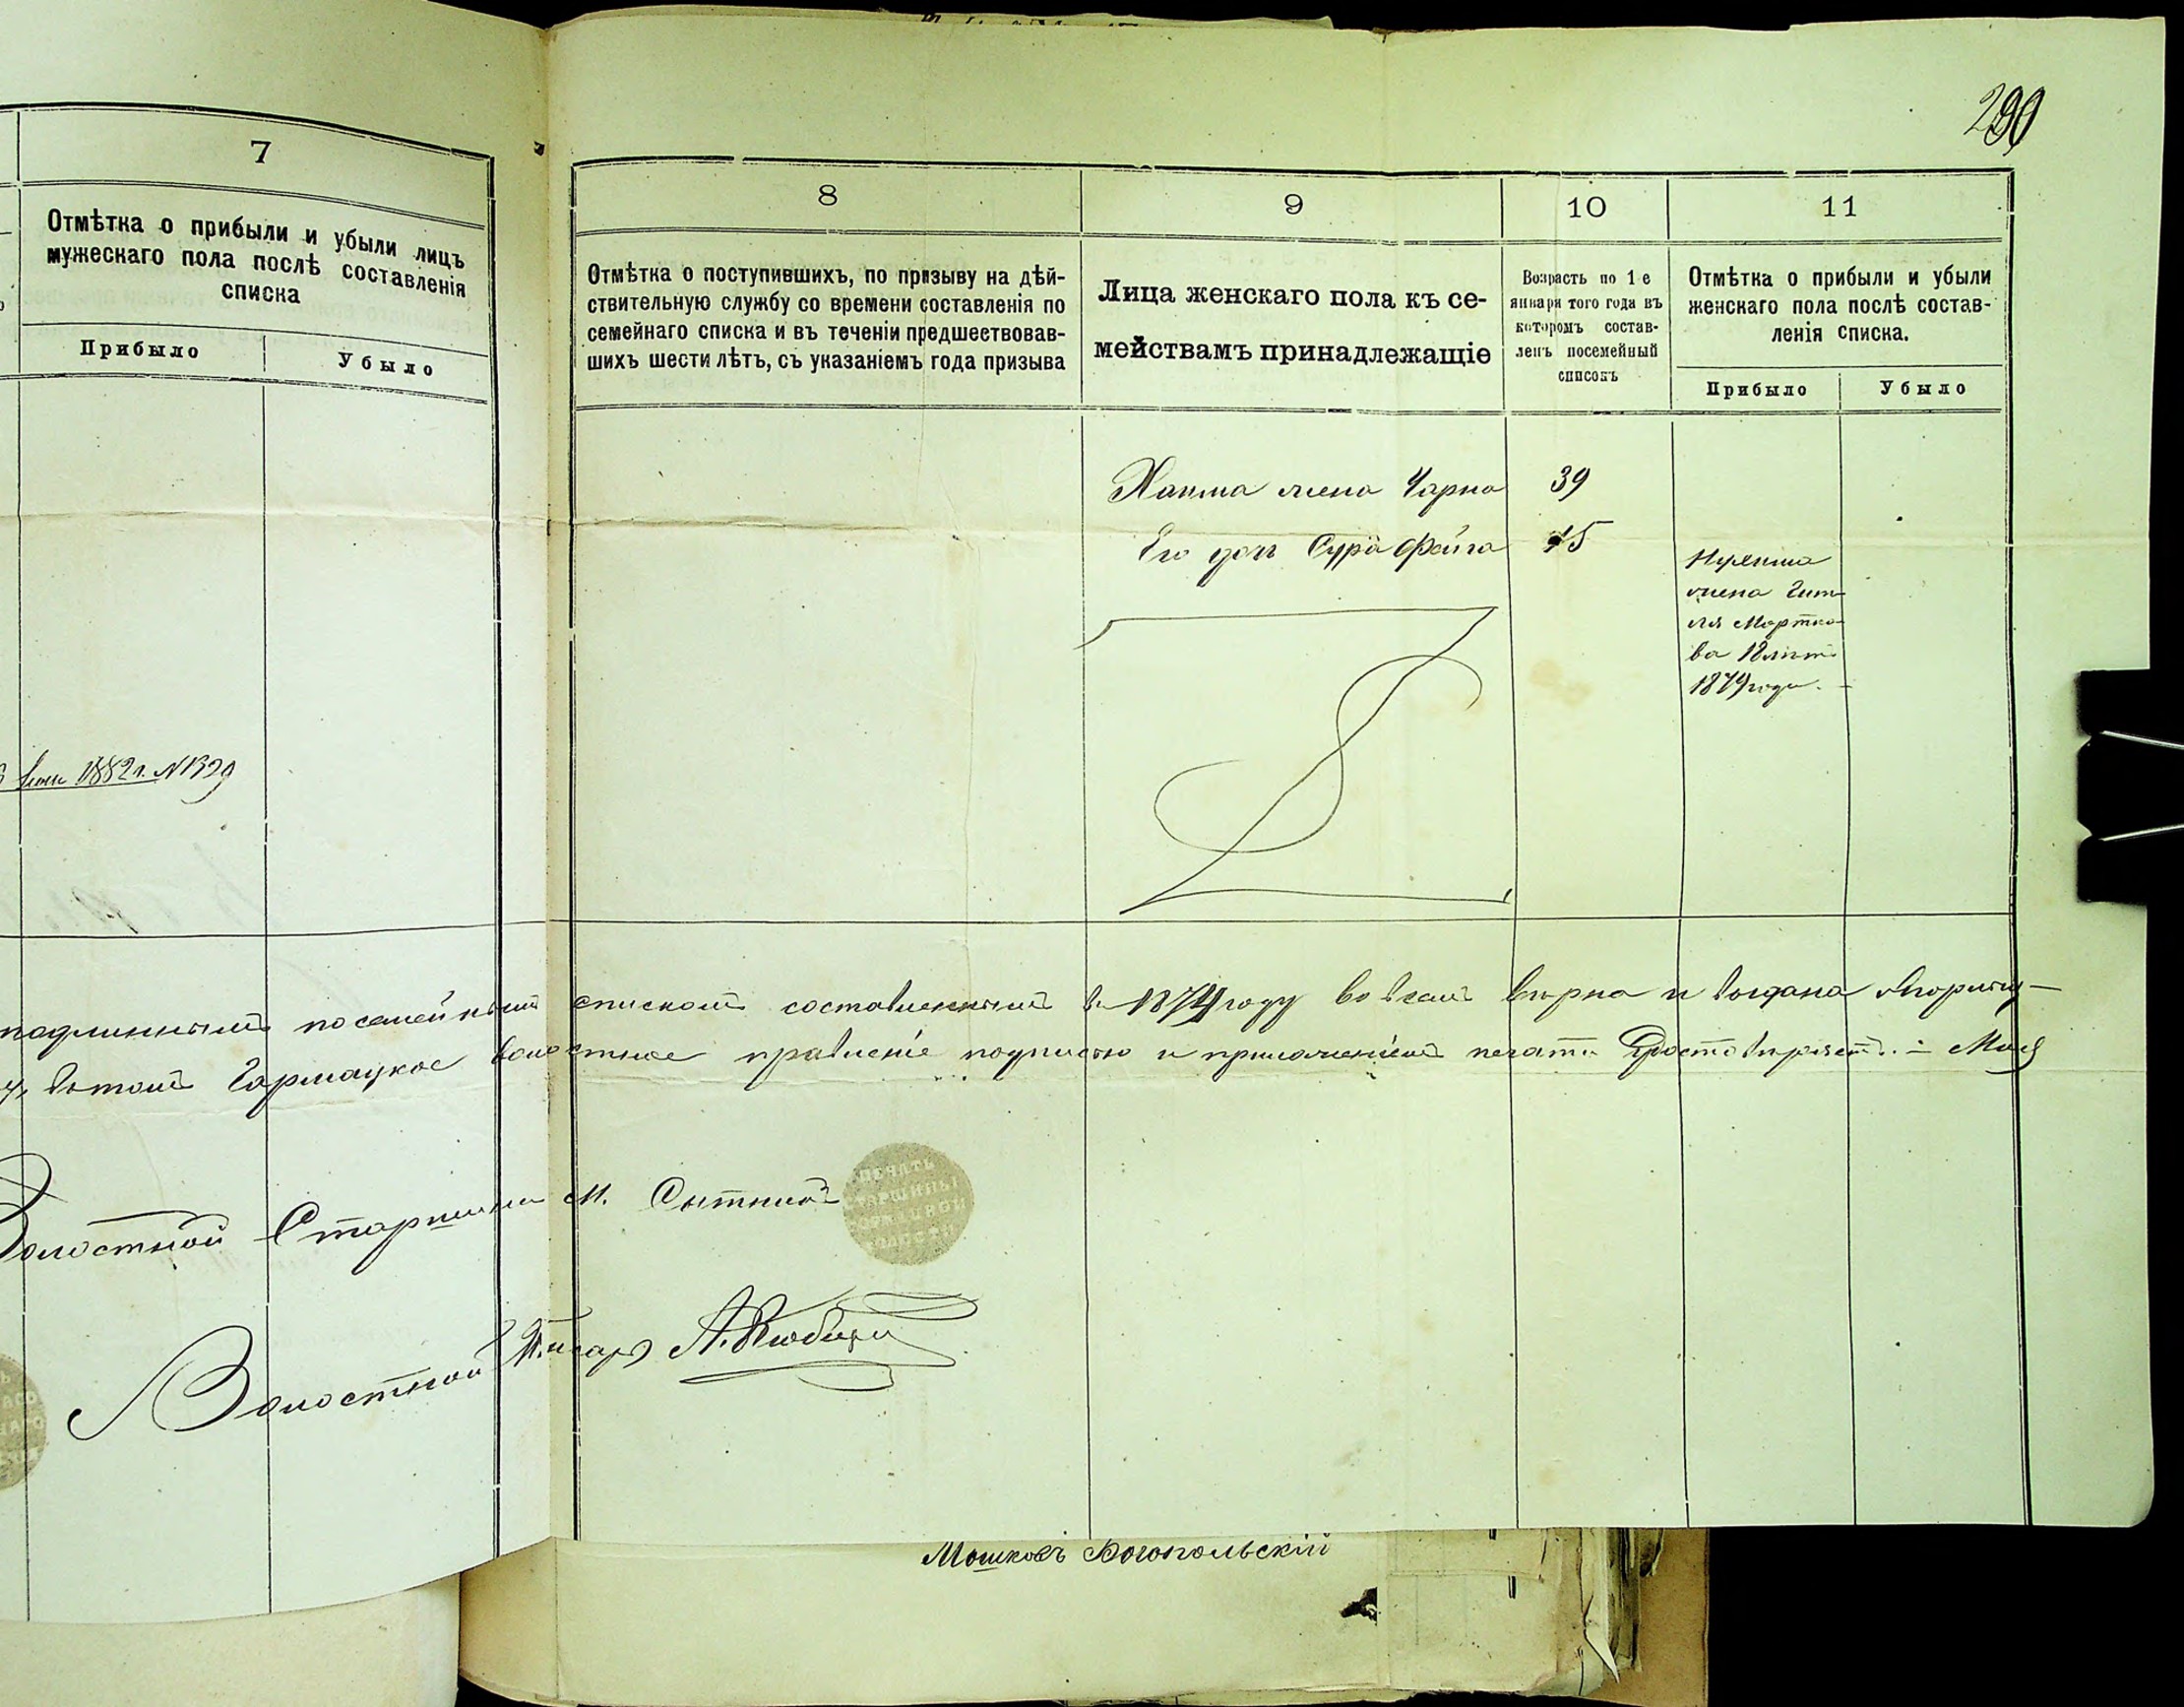 290
7
Отмѣтка о прибыли и убыли лицъ
мужескаго пола послѣ составленія
списка
Прибыло
Убыло
8
Отмѣтка о поступившихъ, по призыву на дѣй-
ствительную службу со времени составленія по
семейнаго списка и въ теченіи предшествовав-
шихъ шести лѣтъ, съ указаніемъ года призыва
9
Лица женскаго пола къ се-
мействамъ принадлежащіе
10
Возрасть по 1 е
января того года въ
которомъ состав-
ленъ посемейный
списокъ
11
Отмѣтка о прибыли и убыли
женскаго пола послѣ состав-
ленія списка.
Прибыло
Убыло
жена Чарна 39
Его дочь Сура Фейга 15
жена Гит-
ля Мортко-
ва 18 лѣтъ
1879 года.
1882 г. № 1329
подлиннымъ посемейнымъ спискомъ составленнымъ въ 1874 году во всемъ вѣрна и выдана
въ томъ волостное правленіе подписью и приложеніемъ печати удостовѣряетъ.
Волостной Старшина М. Сытникъ
ПЕЧАТЬ
СТАРШИНЫ
ВОЛОСТИ
Волостной Писарь А.
Мошковъ Богопольскій